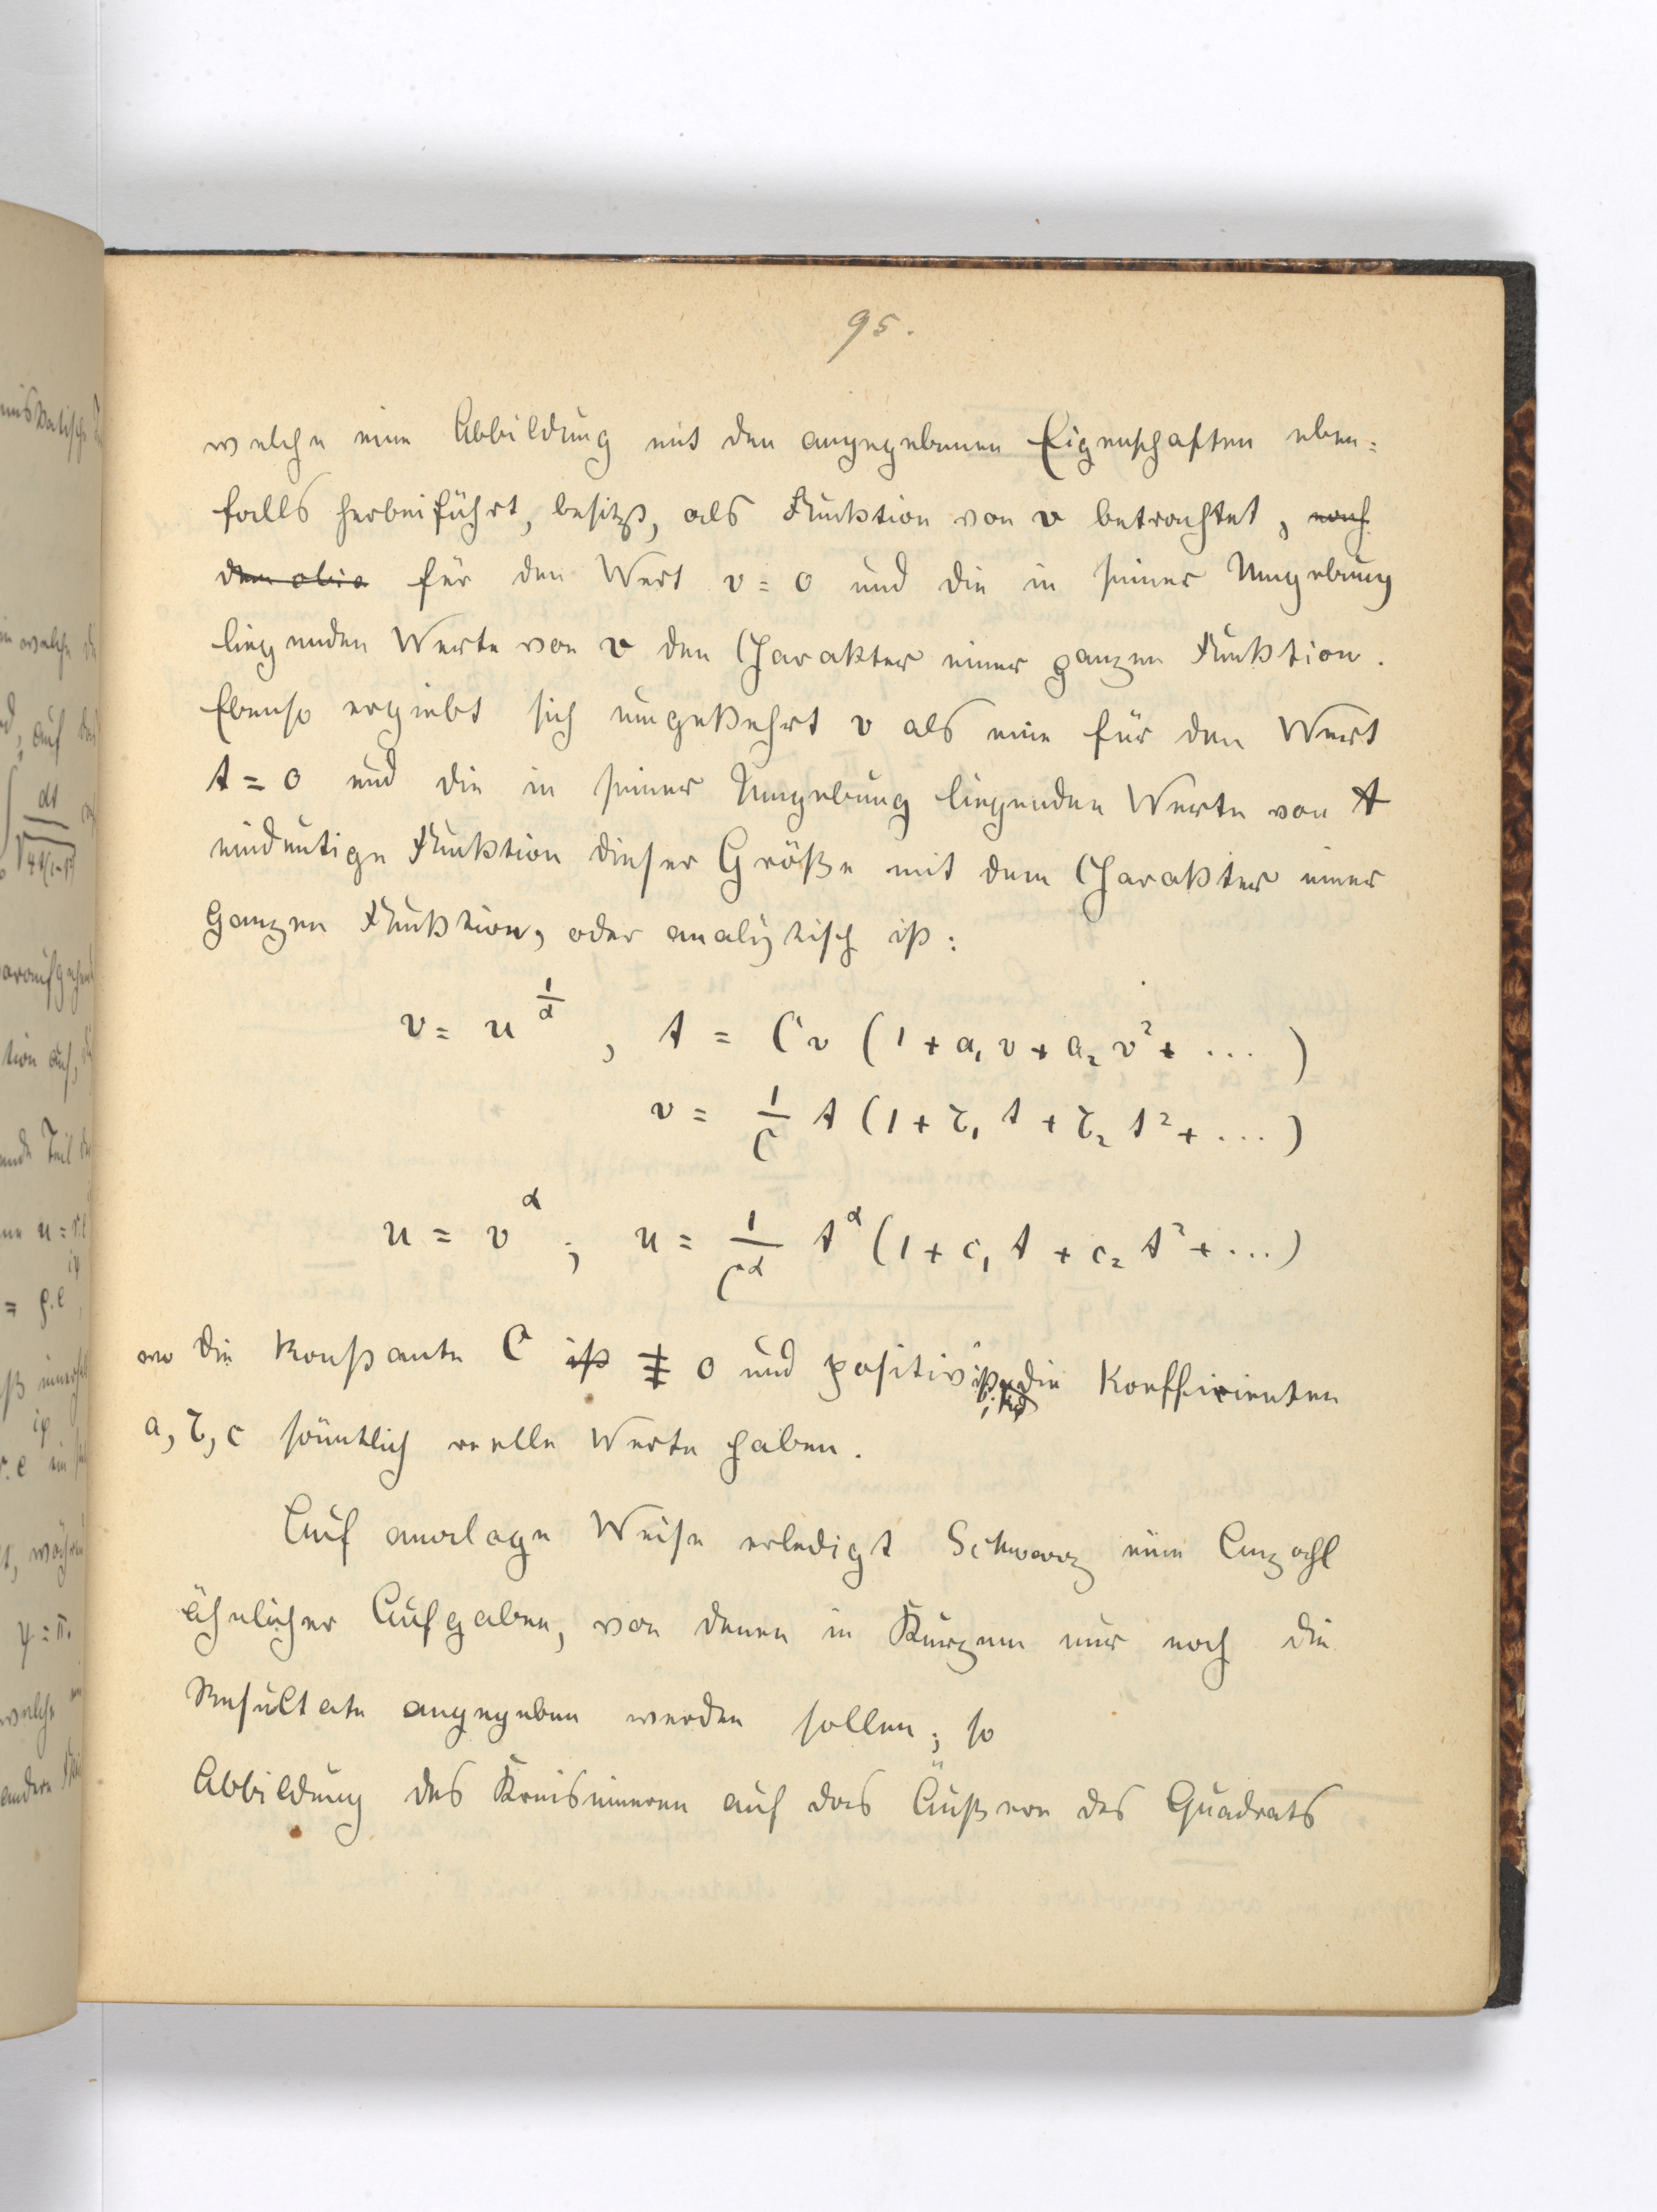 95.
welche eine Abbildung mit den angegebenen Eigenschaften eben=
falls herbeiführt, besitzt, als Funktion von v betrachtet, nach
dem obig für den Wert v = 0 und die in seiner Umgebung
liegenden Werte von v den Charakter einer ganzen Funktion.
Ebenso ergiebt sich umgekehrt v als eine für den Wert
t = 0 und die in seiner Umgebung liegenden Werte von t
eindeutige Funktion dieser Größe mit dem Charakter einer
Ganzen Funktion, oder analytisch ist:
v = u^{1/α}, t = Cv (1 + a₁ v + a₂ v² + ... )
v = 1/C t (1 + b₁ t + b₂ t² + ... )
u = v^α ; u = 1/C^α t^α (1 + c₁ t + c₂ t² + ... )
wo die Konstante C ist ≠ 0 und positiv ist, die Koefficienten
a, b, c sämtlich reelle Werte haben.
Auf analoge Weise erledigt Schwarz eine Anzahl
ähnlicher Aufgaben, von denen in Kurzem nur noch die
Resultate angegeben werden sollen; so
Abbildung des Kreisinneren auf das Äußere des Quadrats